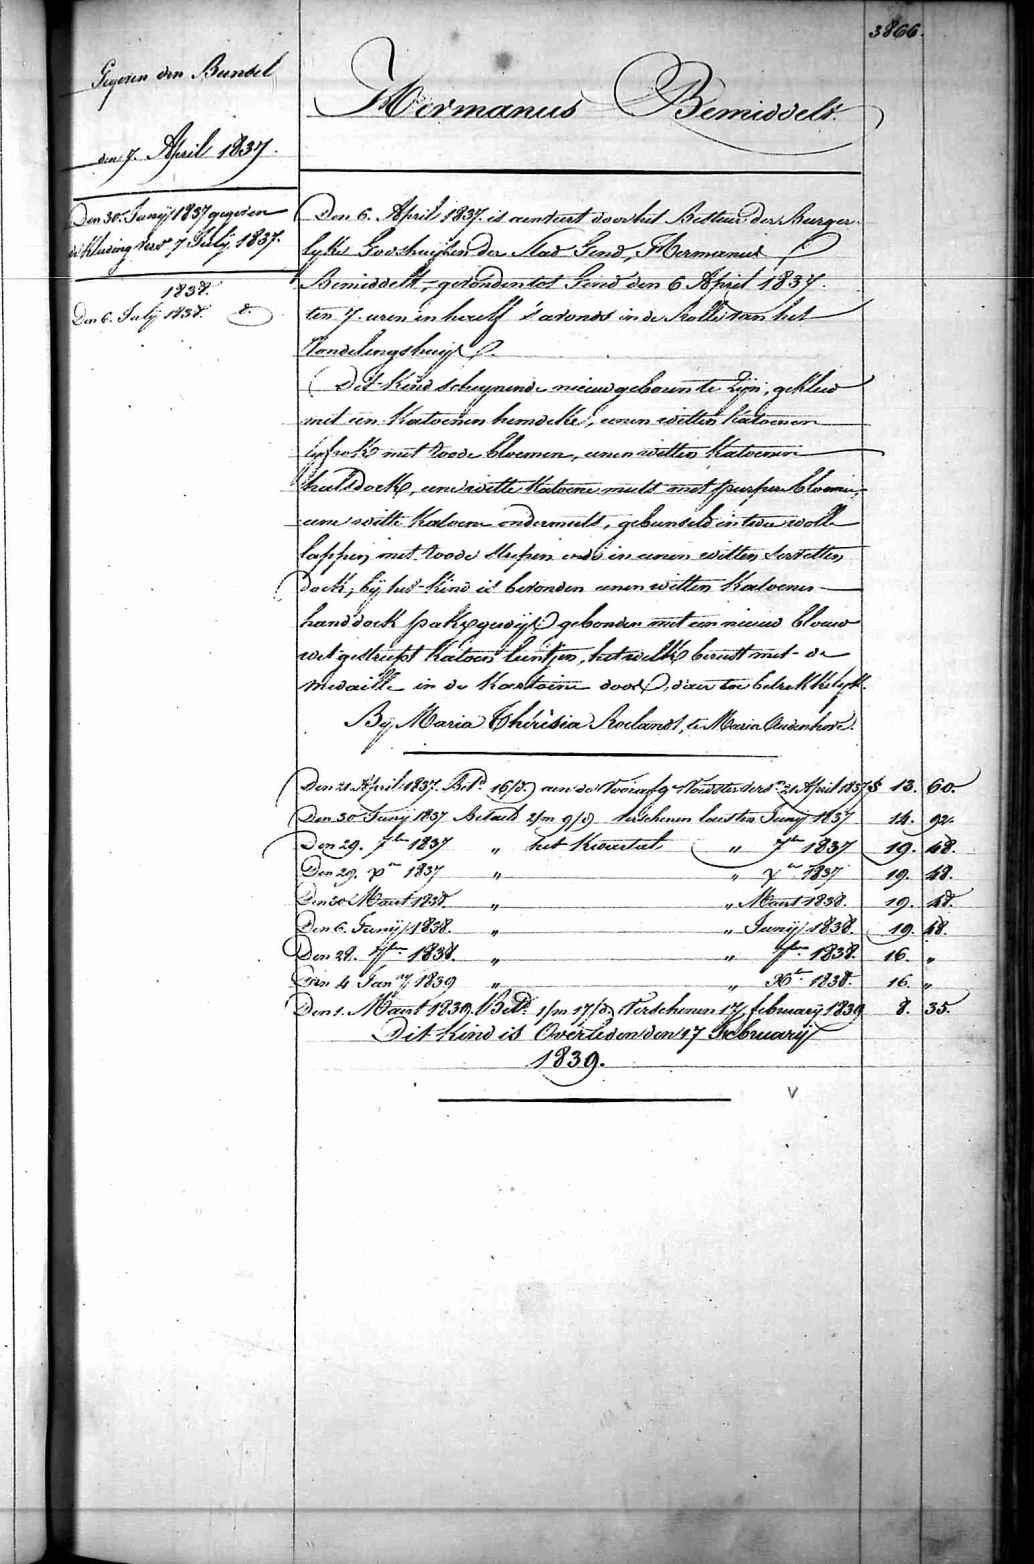 3866.
Gegeven den Bundel
den 7. April 1837.
Den 30. Junij 1837 gegeven
de Kleeding vers. 7 Julij 1837.
1838.
Den 6. Julij 1838.
Hermanus Bemiddelt.
Den 6. April 1837. is aenveert door het Bestuer der Burger-
lyke Godshuijzen der Stad Gend, Hermanus
Bemiddelt, gevonden tot Gend den 6 April 1837.
ten 7. uren en half 's avonds in de Rolle van het
Vondelingshuijs.
Dit Kind scheynende nieuwgeboren te Zijn; gekleed
met een Katoenen hemdeke, eenen witten katoenen
lyfrok met roode bloemen, eenen witten Katoenen
halsdoek, eene witte Katoene muts met purpere bloemen,
eene witte Katoene ondermuts, gebunseld in twee wolle
lappen met roode strepen ende in eenen witten servetten
doek; bij het Kind is bevonden eenen witten Katoenen
handdoek pakxgewijs gebonden met een nieuw blauw
wit gestreept Katoen lintjen, het welk berust met de
medaille in de Kartoine doos, daer toe betrekkelijk.
By Maria Thérèsia Roelandt, te Maria Audenhove.
Den 21 April 1837. Bet.d 16/d. aen de Voorafg. Voedster vers. 21 April 1837 f 13. 60.
Den 30 Junij 1837 Betaeld 2/m 9/d verschenen laesten Junij 1837 14. 92.
Den 29. 7bre 1837 „ het Kwartael „ 7bre 1837 19. 48.
Den 29. Xre 1837 „ „ Xre 1837 19. 48.
Den 30 Maert 1838. „ „ Maert 1838. 19. 48.
Den 6. Junij 1838. „ „ Junij 1838. 19. 48.
Den 28. 7bre 1838. „ 7bre 1838. 16. „
Den 4 Jan.ry 1839 „ „ Xbre 1838. 16. „
Den 1. Maert 1839. Bet.d 1/m 17/d. Verschenen 17 february 1839 8. 35.
Dit Kind is Overleden den 17 Februarij
1839.
V